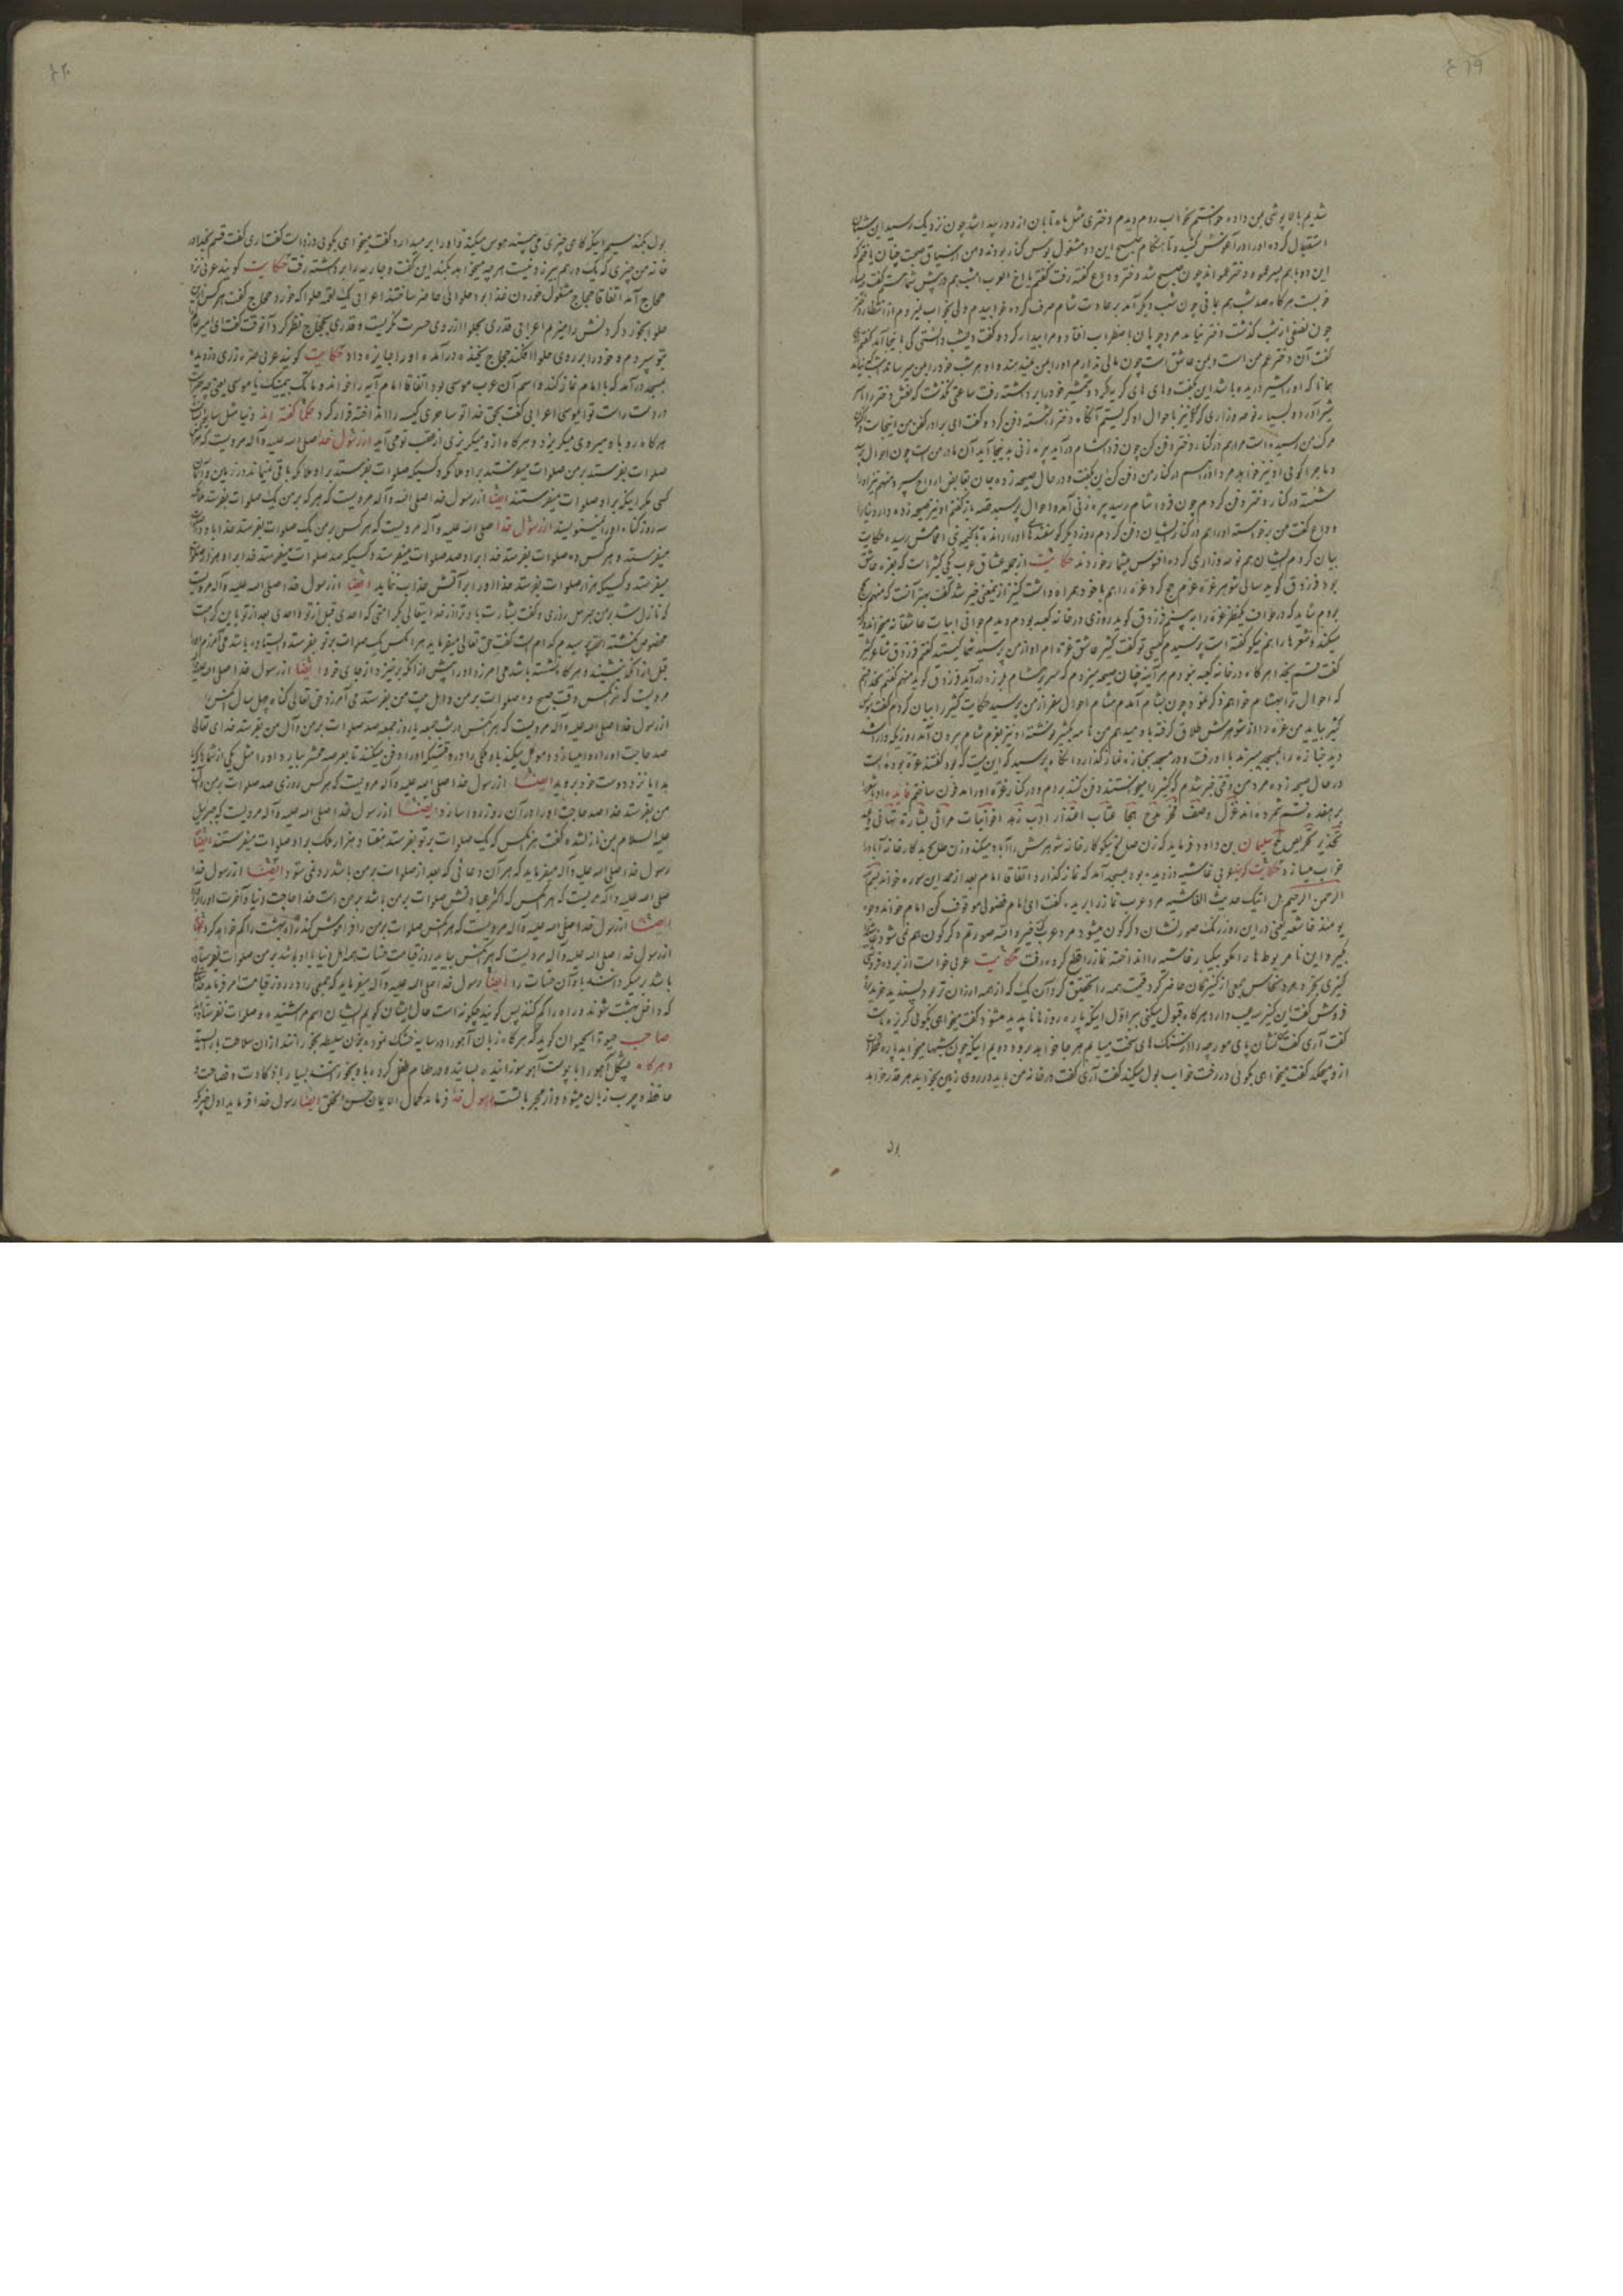 شدیم بالاپوشی بمن داده خواستم بخواب روم دیدم دختری مثل ماه تابان از دور پیدا شد چون نزدیک رسید این شبان
استقبال کرده او را در آغوش کشیده تا هنگام صبح این دو مشغول بوس کنار بودند و من
این دو با هم پسر عمو و دختر عمو اند چون صبح شد دختر وداع گفته رفت گفتم یا اخ العرب امشب هم در پیش شما هستم گفت
خوبست هرگاه صد شب هم بمانی چون شب دیگر آمد بر عادت شام صرف کرده خوابیدم ولی بخواب نیز
چون نصفی از شب گذشت دختر نیامد مرد چوپان باضطراب افتاد و مرا بیدار کرد و گفت دیشب دانستی که اینجا آمد گفتم
گفت آن دختر عم من است و بمن عاشق است چون مالی ندارم او را بمن نمیدهند و او هر شب خود را بمن میرساند
همانا که او را شیر دریده باشد این بگفت و های های گریه کرد و شمشیر خود را برداشته رفت ساعتی نگذشت که نعش دختر را با سر
شیر آورد و بسیار نوحه و زاری کرد من نیز باحوال او گریستم آنگاه دختر را شسته دفن کرد و گفت ای برادر کفن من اینجاست
مرگ من رسیده است مرا هم در کنار دختر دفن کن چون فردا شام در آید پیره زنی بدینجا آید آن مادر من است چون احوال پرسد
و ماجرا گوئی او نیز خواهد مرد او را هم در کنار من دفن کن این بگفت و در حال صیحه زده جان بقابض ارواح سپرد منهم نیز او را
شسته در کنار دختر دفن کردم چون فردا شام رسید پیره زنی آمده احوال پرسید قصه باز گفتم او نیز صیحه زده دار دنیا را
وداع گفت من برخواسته او را هم در کنار ایشان دفن کردم روز دیگر گوسفندهای او را رانده تا بخیمه
بیان کردم ایشان هم نوحه و زاری کرده افسوس بیشمار خوردند حکایت از جمله عشاق عرب یکی کثیر است که بعزه عاشق
بود فرزدق گوید سالی شوهر عزه عزم حج کرد عزه را هم با خود همراه داشت کثیر ازین معنی خبر شد گفت بهتر آنست که منهم
بروم شاید که در طواف یکنظر عزه را ببینم فرزدق گوید روزی در خانه کعبه بودم دیدم جوانی ابیات عاشقانه میخواند
میکند و شعرها را هم نیکو گفته است پرسیدم کیستی تو گفت کثیر عاشق عزه ام او از من پرسید شما کیستید گفتم فرزدق شاعر
گفت قسم بخدا هرگاه در خانه کعبه نبودم هر آینه چنان صیحه میزدم که سریر هشام بلرزه در آید فرزدق گوید منهم گفتم بخدا قسم
که احوال ترا بهشام خواهم ذکر نمود چون بشام آمدم هشام احوال سفر از من پرسید حکایت کثیر را بیان کردم گفت
کثیر بیاید من عزه را از شوهرش طلاق گرفته باو میدهم من نامه بکثیر نوشته او نیز بعزم شام بیرون آمد روزیکه وارد شد
دید جنازه را بمسجد میبرند با او رفت و در مسجد بجنازه نماز گذارد آنگاه پرسید که این میت که بود گفتند عزه بوده است
در حال صیحه زده مرد من وقتی خبر شدم که کثیر را میخواستند دفن کنند بردم و در کنار عزه او را مدفون ساختم فائده
بر هفده قسم شمرده اند غزل وصف فخر مدح هجا عتاب اعتذار ادب زهد اخوانیات مراثی بشارت تهانی وعید
تحذیر تحریض ملح سلیمان بن داود فرماید که زن صالح نیکوکار خانه شوهرش را آباد میکند و زن طالح بدکار خانه آباد را
خراب میسازد حکایت گویند عربی غاشیه دزدیده بود بمسجد آمد که نماز گذارد اتفاقا امام بعد از حمد این سوره خواند بسم الله
الرحمن الرحیم هل اتیک حدیث الغاشیه مرد عرب نماز را برید گفت ای امام فضولی موقوف کن امام خواند وجوه
یومئذ خاشعه یعنی در این روز رنگ صورتشان دگرگون میشود مرد عرب گفت خیر والله صورتم دگرگون هم نمی شود
بگیر و این نامربوط ها را مگو بیکبار غاشیه را انداخته نماز را قطع کرده رفت حکایت عربی خواست از برده فروشی
کنیزی بخرد مرد نخاس جمعی از کنیزکان حاضر کرد قیمت همه را تحقیق کرد آن یک که از همه ارزان تر بود پسندید خرید
فروش گفت این کنیز سه عیب دارد هرگاه قبول میکنی ببر اول اینکه پاره روزها ناپدید میشود گفت میخواهی بگوئی گریزه پاست
گفت آری گفت من نشان پای مورچه را از سنگ های سخت مییابم هر جا خواهد برود دویم اینکه چون شبها میخوابد پاره قطرات
از او میچکد گفت میخواهی بگوئی در رخت خواب بول میکند گفت آری گفت در خانه من باید در روی زمین بخوابد هر قدر خواهد
بول
بول بکند سیم اینکه گاهی چیزی می بیند هوس میکند و او را بر میدارد گفت میخواهی بگوئی دزد است گفت آری گفت قسم بخدا در
خانه من چیزی که یک درهم بیرزد نیست هر چه میخواهد بکند این گفت و جاریه را برداشته رفت حکایت گویند عربی نزد
حجاج آمد اتفاقا حجاج مشغول خوردن غذا بود حلوائی حاضر ساختند اعرابی یک لقمه حلوا که خورد حجاج گفت هر کس ازین
حلوا بخورد گردنش را میزنم اعرابی قدری بحلوا از روی حسرت نگریست و قدری بحجاج نظر کرد آنوقت گفت ای امیر
بتو سپردم و خود را بر روی حلوا افکند حجاج بخنده در آمده او را جایزه داد حکایت گویند عربی صره زری دزدیده
بمسجد در آمد که با امام نماز کند و اسم آن عرب موسی بود اتفاقا امام آیه را خواند و ما تلک بیمینک یا موسی یعنی چه چیز است
در دست راست تو ای موسی اعرابی گفت بحق خدا تو ساحری کیسه را انداخته فرار کرد حکما گفته اند دنیا مثل سایه است
هرگاه رو باو میروی میگریزد و هرگاه از او میگریزی از عقب تو می آید از رسول خدا صلی الله علیه و آله مرویست که هرگاه
صلوات بفرستد بر من صلوات میفرستند بر او ملائکه و کسیکه صلوات بفرستند بر او ملائکه باقی نمیماند در زمین و آسمان
کسی مگر اینکه بر او صلوات میفرستند ایضا از رسول خدا صلی الله علیه و آله مرویست که هر که بر من یک صلوات بفرستد
سه روز گناه او را نمینویسند از رسول خدا صلی الله علیه و آله مرویست که هر کس بر من یک صلوات بفرستد خدا باو ده صلوات
میفرستد و هر کس ده صلوات بفرستد خدا بر او صد صلوات میفرستد و کسیکه صد صلوات میفرستد خدا بر او هزار صلوات
میفرستد و کسیکه هزار صلوات بفرستد خدا او را بر آتش عذاب ننماید ایضا از رسول خدا صلی الله علیه و آله مرویست
که نازل شد بر من جبرئیل روزی و گفت بشارت باد ترا از خدایتعالی کرامتی که احدی قبل از تو و احدی بعد از تو باین کرامت
مخصوص نگشته پرسیدم کدام است گفت حق تعالی میفرماید هر آنکس یک صلوات بر تو بفرستد و ایستاده باشد می آمرزم او را
قبل از آنکه بنشیند و هرگاه نشسته باشد می امرزد او را پیش از آنکه بر خیزد از جای خود ایضا از رسول خدا صلی الله علیه
مرویست که هر کس وقت صبح ده صلوات بر من و اهل بیت من بفرستد می آمرزد حق تعالی گناه چهل سال
از رسول خدا صلی الله علیه و آله مرویست که هر کس در شب جمعه یا روز جمعه صد صلوات بر من و آل من بفرستد خدای تعالی
صد حاجت او را روا میسازد و موکل میکند باو ملکی را در وقتیکه او را دفن میکنند تا بعرصه محشر بیاید و او را مثل یکی از شماها که با
هدایا نزد دوست خود بروید ایضا از رسول خدا صلی الله علیه و آله مرویست که هر کس روزی صد صلوات بر من و آل
من بفرستد خدا صد حاجت او را در آن روز روا سازد ایضا از رسول خدا صلی الله علیه و آله مرویست که جبرئیل
علیه السلام بمن نازل شده گفت هر آنکس که یک صلوات بر تو بفرستد هفتاد هزار ملک بر او صلوات میفرستند ایضا
رسول خدا صلی الله علیه و آله میفرماید که هر آن دعائی که بعد از صلوات بر من باشد رد نمی شود ایضا از رسول خدا
صلی الله علیه و آله مرویست که هر آنکس که اکثر عبادتش صلوات بر من باشد بر من است خدا حاجت دنیا و آخرت او را
ایضا از رسول خدا صلی الله علیه و آله مرویست که هر کس صلوات بر من را فراموش کند راه بهشت را گم خواهد کرد ایضا
از رسول خدا صلی الله علیه و آله مرویست که هر کس بیاید روز قیامت حسنات همه اهل دنیا با او باشد بر من صلوات نفرستاده
باشد رد میکرداند باو آن حسنات را ایضا رسول خدا صلی الله علیه و آله میفرماید که جمعی را در روز قیامت امر فرماید
که داخل بهشت شوند و راه را گم کنند پس گویند چگونه است حال ایشان گویم ایشان اسم مرا شنیده و صلوات نفرستاده
صاحب حیوة الحیوان گوید که هرگاه زبان آهو را در سایه خشک نموده بزن سلیطه بخورانند از آن سلاطت باز ایستد
و هرگاه پشکل آهو را با پوست آهو سوزانیده بسایند و در طعام طفل کرده باو بخورانند بسیار باذکاوت و فصاحت و
حافظه و چرب زبان میشود رسول خدا فرماید کمال الایمان حسن الخلق ایضا رسول خدا فرماید اول چیزیکه